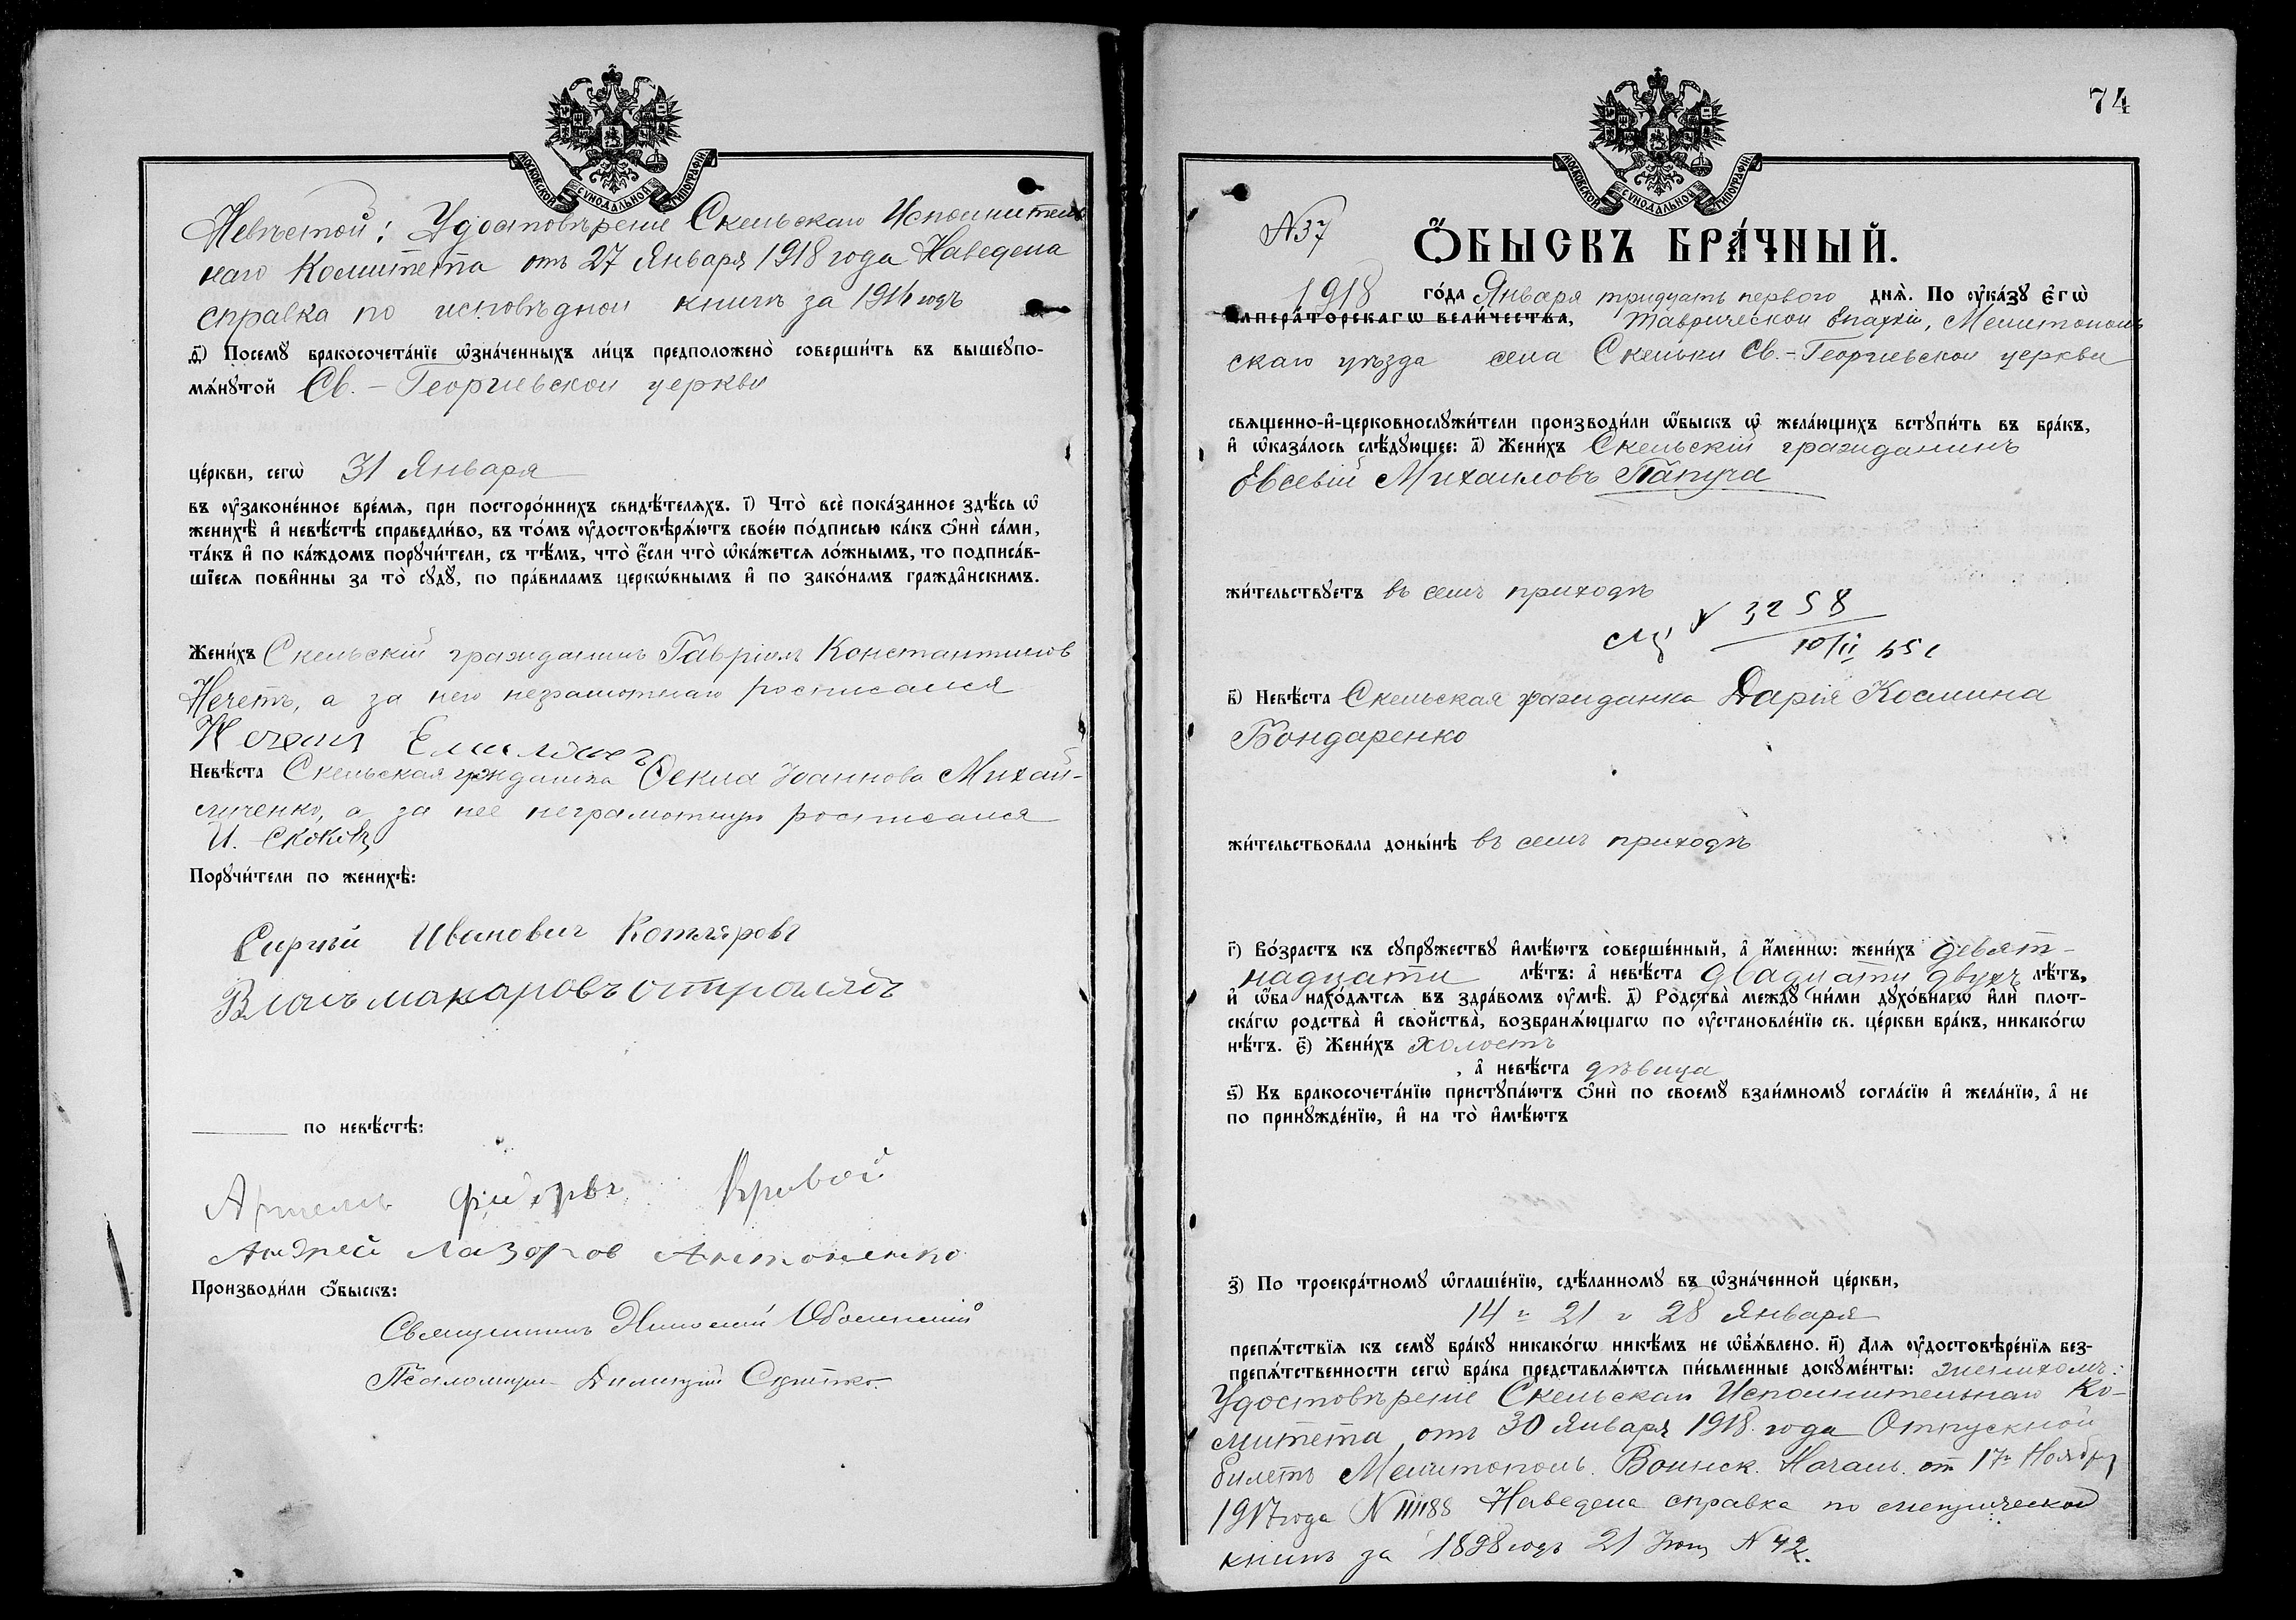 МОСКОВСКОЙ СѴНОДАЛЬНОЙ ТИПОГРАФІИ.
Невѣстой: Удостовѣреніе Скельскаго Исполнитель
наго Комитета отъ 27 Января 1918 года Наведена
справка по исповѣдной книгѣ за 1916 годъ
д҃) Посемꙋ бракосочета́нїе ѡ҆зна́ченныхъ ли́цъ предположено̀ соверши́ть въ вышеꙋпо-
мѧ́нꙋтой Св. - Георгіевской церкви
це́ркви, сегѡ̀ 31 Января
въ ᲂу҆законе́нное вре́мѧ, при посторо́ннихъ свидѣ́телѧхъ. і҃) Что̀ всѐ пока́занное здѣ́сь ѡ҆
женихѣ̀ и҆ невѣ́стѣ справедли́во, въ то́мъ ᲂу҆достовѣрѧ́ютъ свое́ю по́дписью ка́къ ѻ҆нѝ са́ми,
та́къ и҆ по ка́ждомъ порꙋчи́тели, съ тѣ́мъ, что̀ є҆́сли что̀ ѡ҆ка́жетсѧ ло́жнымъ, то подписа́в-
шїесѧ пови́нны за то̀ сꙋдꙋ̀, по пра́виламъ церкѡ́внымъ и҆ по зако́намъ гражда́нскимъ.
Жени́хъ Скельскій гражданинъ Гавріилъ Константиновъ
Нечетъ, а за него неграмотнаго росписался
Невѣ́ста Скельская гражданка Ѳекла Іоаннова Михай-
личенко, а за нее неграмотную росписался
И. Скоковъ
Порꙋчи́тели по женихѣ̀:
Сиргѣй Иванович Котляровъ
Власъ макаровъ
по невѣ́стѣ:
Кривой
Андрей Лазоров Антоненко
Производи́ли ѻ҆́быскъ:
Священникъ Николай Оболенскій
Псаломщ. Димитрій
74
МОСКОВСКОЙ СѴНОДАЛЬНОЙ ТИПОГРАФІИ.
N 37
Ѻ҆́БЫСКЪ БРА́ЧНЫЙ.
1918 го́да Января тридцать перваго днѧ̀. По ᲂу҆ка́зꙋ є҆гѡ̀
и҆мпера́торскагѡ вели́чества, Таврической Епархіи, Мелитополь
скаго уѣзда села Скельки Св. - Георгіевской церкви
свѧщенно-и҆-церковнослꙋжи́тели производи́ли ѡ҆́быск ѡ҆ жела́ющихъ встꙋпи́ть въ бра́къ,
и҆ ѡ҆каза́лось слѣ́дꙋющее: а҃) Жени́хъ Скельскій гражданинъ
Евсевій Михаиловъ Папуча
жи́тельствꙋетъ въ семъ приходѣ
N 3258
в҃) Невѣ́ста Скельская гражданка Дарія Космина
Бондаренко
жи́тельствовала доны́нѣ въ семъ приходѣ
г҃) Во́зрастъ къ сꙋпрꙋжествꙋ и҆мѣ́ютъ соверше́нный, а҆ и҆́меннѡ: жени́хъ девят-
надцати лѣ́тъ: а҆ невѣ́ста двадцати двухъ лѣ́тъ,
и҆ ѡ҆́ба нахо́дѧтсѧ въ здра́вомъ ᲂу҆мѣ̀. д҃) Ро́дства̀ междꙋ̀ ни́ми дꙋхо́внагѡ и҆лѝ плот-
ска́гѡ родства̀ и҆ свойства̀, возбранѧ́ющагѡ по ᲂу҆становле́нїю св. це́ркви бра́къ, никако́гѡ
нѣ́тъ. є҃) Жени́хъ холостъ
, а҆ невѣ́ста дѣвица
ѕ҃) Къ бракосочета́нїю пристꙋпа́ютъ ѻ҆нѝ по своемꙋ̀ взаи́мномꙋ согла́сїю и҆ жела́нїю, а҆ не
по принꙋжде́нїю, и҆ на то̀ и҆мѣ́ютъ
з҃) По троекра́тномꙋ ѡ҆глаше́нїю, сдѣ́ланномꙋ въ ѡ҆зна́ченной це́ркви,
14 и 21 и 28 Января
препѧ́тствїѧ къ семꙋ̀ бра́кꙋ никако́гѡ никѣ́мъ не ѡ҆б̾ѧ́влено. и҃) Длѧ ᲂу҆достовѣре́нїѧ без-
препѧ́тственности сегѡ̀ бра́ка представлѧ́ютсѧ пи́сьменные докꙋме́нты: женихомъ:
Удостовѣреніе Скельскаго Исполнительнаго Ко-
митета отъ 30 Января 1918 года Отпускной
билетъ Мелитополь. Воинск. Началь. от 17 Ноября
1917 года Наведена справка по метрической
книгѣ за 1898 годъ 21 N 42.